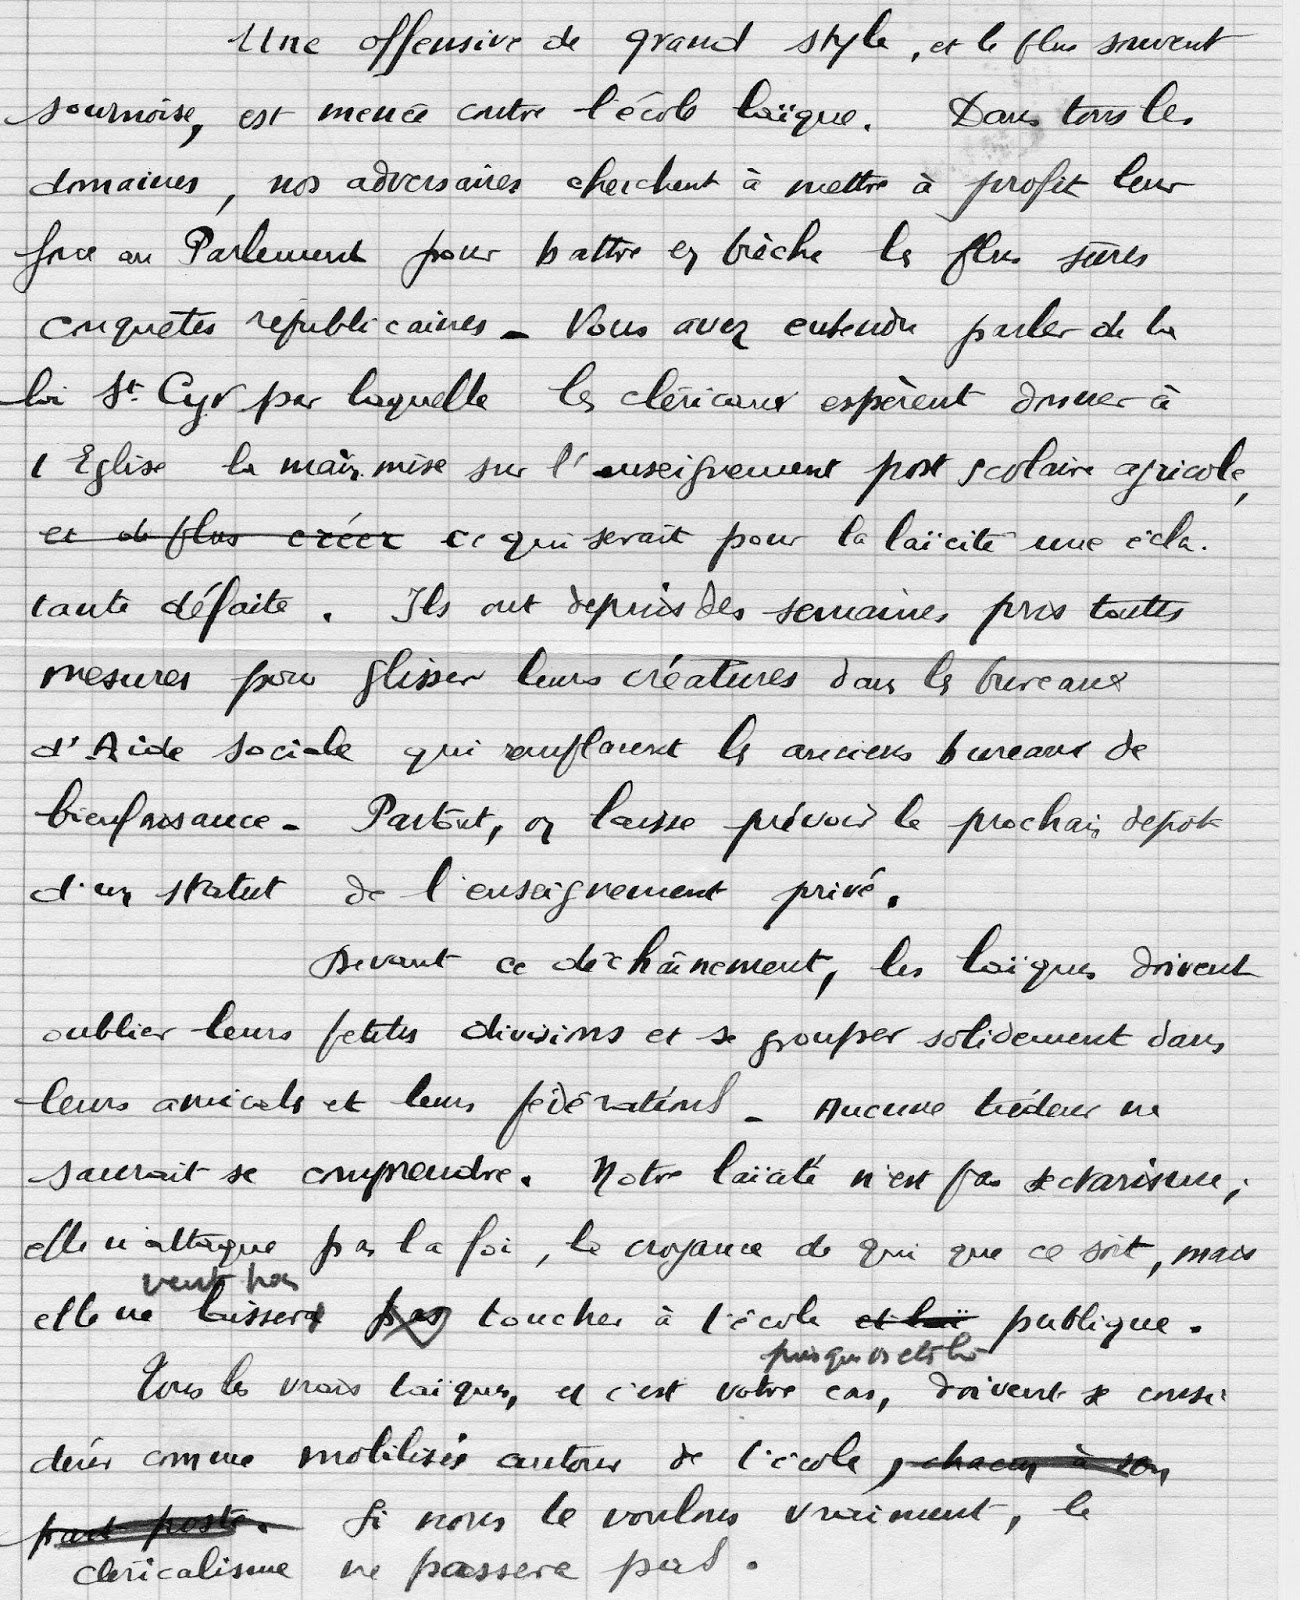 Une offensive de grand style, et le plus souvent
sournoise, est menée contre l'école laïque. Dans tous les
domaines, nos adversaires cherchent à mettre à profit leur
force au Parlement pour battre en brèche les plus sûres
conquêtes républicaines - Vous avez entendu parler de la
loi St. Cyr par laquelle les cléricaux espèrent donner à
l'Eglise la main mise sur l'enseignement post scolaire agricole,
et de plus créer ce qui serait pour la laïcité une écla-
tante défaite. Ils ont depuis des semaines pris toutes
mesures pour glisser leurs créatures dans les bureaux
d'Aide sociale qui remplacent les anciens bureaux de
bienfaisance - Partout, on laisse prévoir le prochain dépôt
d'un statut de l'enseignement privé.
Devant ce déchaînement, les laïques doivent
oublier leurs petites divisions et se grouper solidement dans
leurs amicales et leurs fédérations - Aucune tiédeur ne
saurait se comprendre. Notre laïcité n'est pas sectarisme ;
elle n'attaque pas la foi, la croyance de qui que ce soit, mais
veut pas
elle ne laissera pas toucher à l'école et laï publique.
Tous les vrais laïques, et c'est votre cas, doivent se consi
dérer comme mobilisés autour de l'école, chacun à son
part poste. Si nous le voulons vraiment, le
cléricalisme ne passera pas.